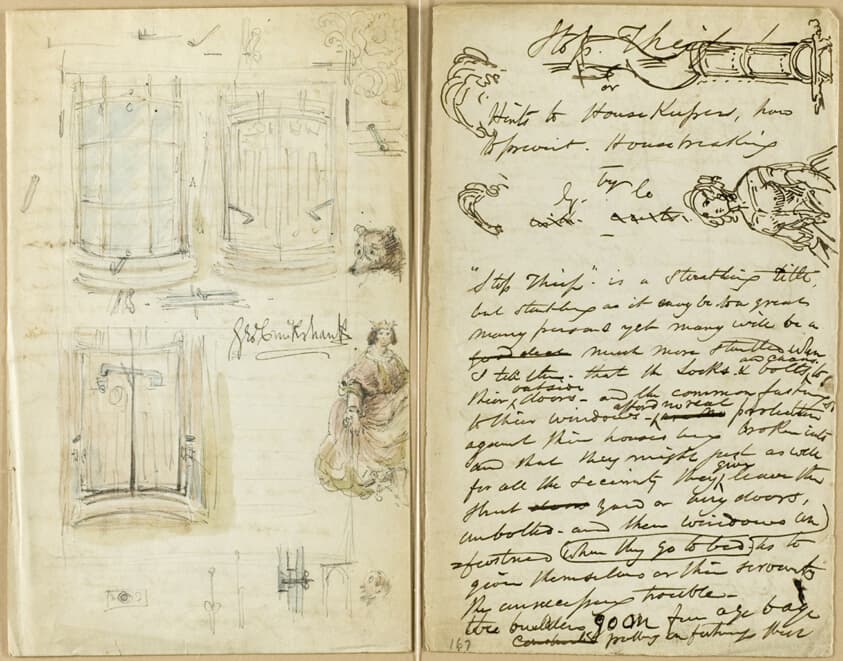 Geo Cruikshank
Stop. Thief!
or
Hints to HouseKeepers, how
to prevent. Housebreaking
by
"Stop Thief" is a Startling title,
but startling as it may be to a great
many persons yet many will be a
good deal much more startled when
I tell them - that the locks & bolts and chains to
their outside doors - and the common fastenings
to their windows - afford no real protection
against their houses being broken into
and that they might just as well
for all the security they give, leave the
Street doors yard or area doors,
unbolted - and their windows un
=fastened (when they go to bed) as to
give themselves or their servants
the unnecessary trouble -
The builders
putting on fastenings
167